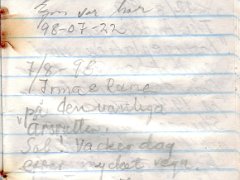 var här
98-07-22
7/8-98
Irma & Rune
på den vanliga
Sol! Vacker dag
mycket regn